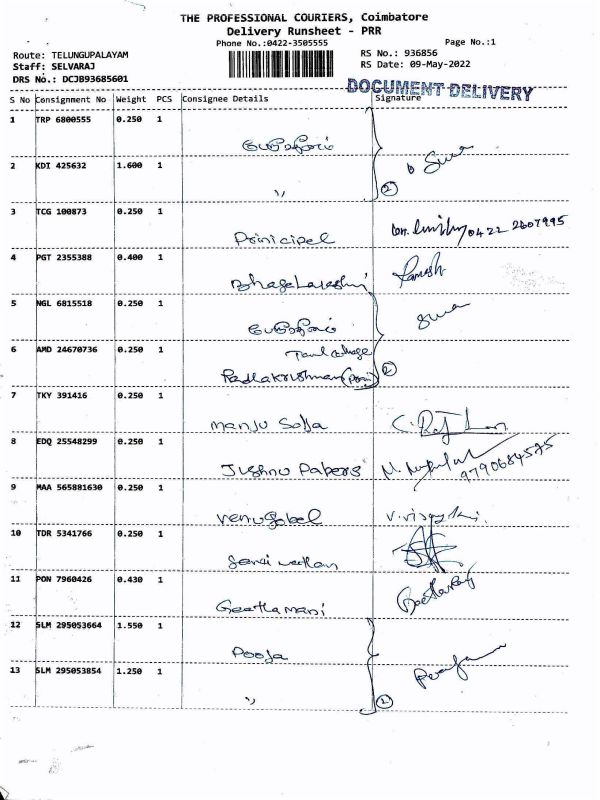 THE PROFESSIONAL COURIERS, Coimbatore
Delivery Runsheet - PRR
Phone No.:0422-3505555
Page No.:1
Route: TELUNGUPALAYAM
RS No.: 936856
Staff: SELVARAJ
RS Date: 09-May-2022
DRS No.: DCJB93685601
DOCUMENT DELIVERY
S No Consignment No Weight PCS Consignee Details Signature
1 TRP 6800555 0.250 1
2 KDI 425632 1.600 1
2
3 TCG 100873 0.250 1
Prinicipel 0422 2607995
4 PGT 2355388 0.400 1
Ramesh
5 NGL 6815518 0.250 1
6 AMD 24670736 0.250 1
2
7 TKY 391416 0.250 1
manju
8 EDQ 25548299 0.250 1
Jishnu Papers 9790684525
9 MAA 565881630 0.250 1
venugobel
10 TDR 5341766 0.250 1
11 PON 7960426 0.430 1
Geethamani
12 SLM 295053664 1.550 1
Pooja
13 SLM 295053854 1.250 1
Pooja
2